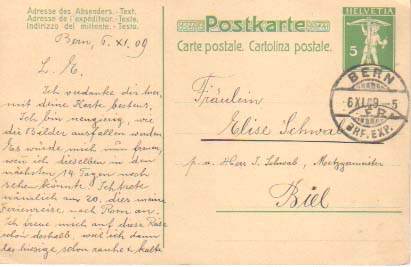 Adresse des Absenders. - Text.
Adresse de l'expéditeur. - Texte.
Indirizzo del mittente. - Testo.
Postkarte
Carte postale. Cartolina postale.
HELVETIA
5
BERN
-6.XI.09.-5
BRF. EXP.
Bern, 6. XI. 09
L. E.
Ich verdanke dir hier,
mit deine Karte bestens.
Ich bin neugierig, wie
die Bilder ausfallen werden
Es würde mich nun freuen,
wen ich dieselben in den
nächsten 14 Tagen noch
sehen könnte. Ich trete
nämlich am 20. dies meine
Ferienreise nach Rom an.
Ich freue mich auf diese Reise
schon deshalb, weil ich dann
das hiesige schon rauhe & kalte
Fräulein
Elise Schwab
p. a. Herr J. Schwab, Metzgermeister
Biel